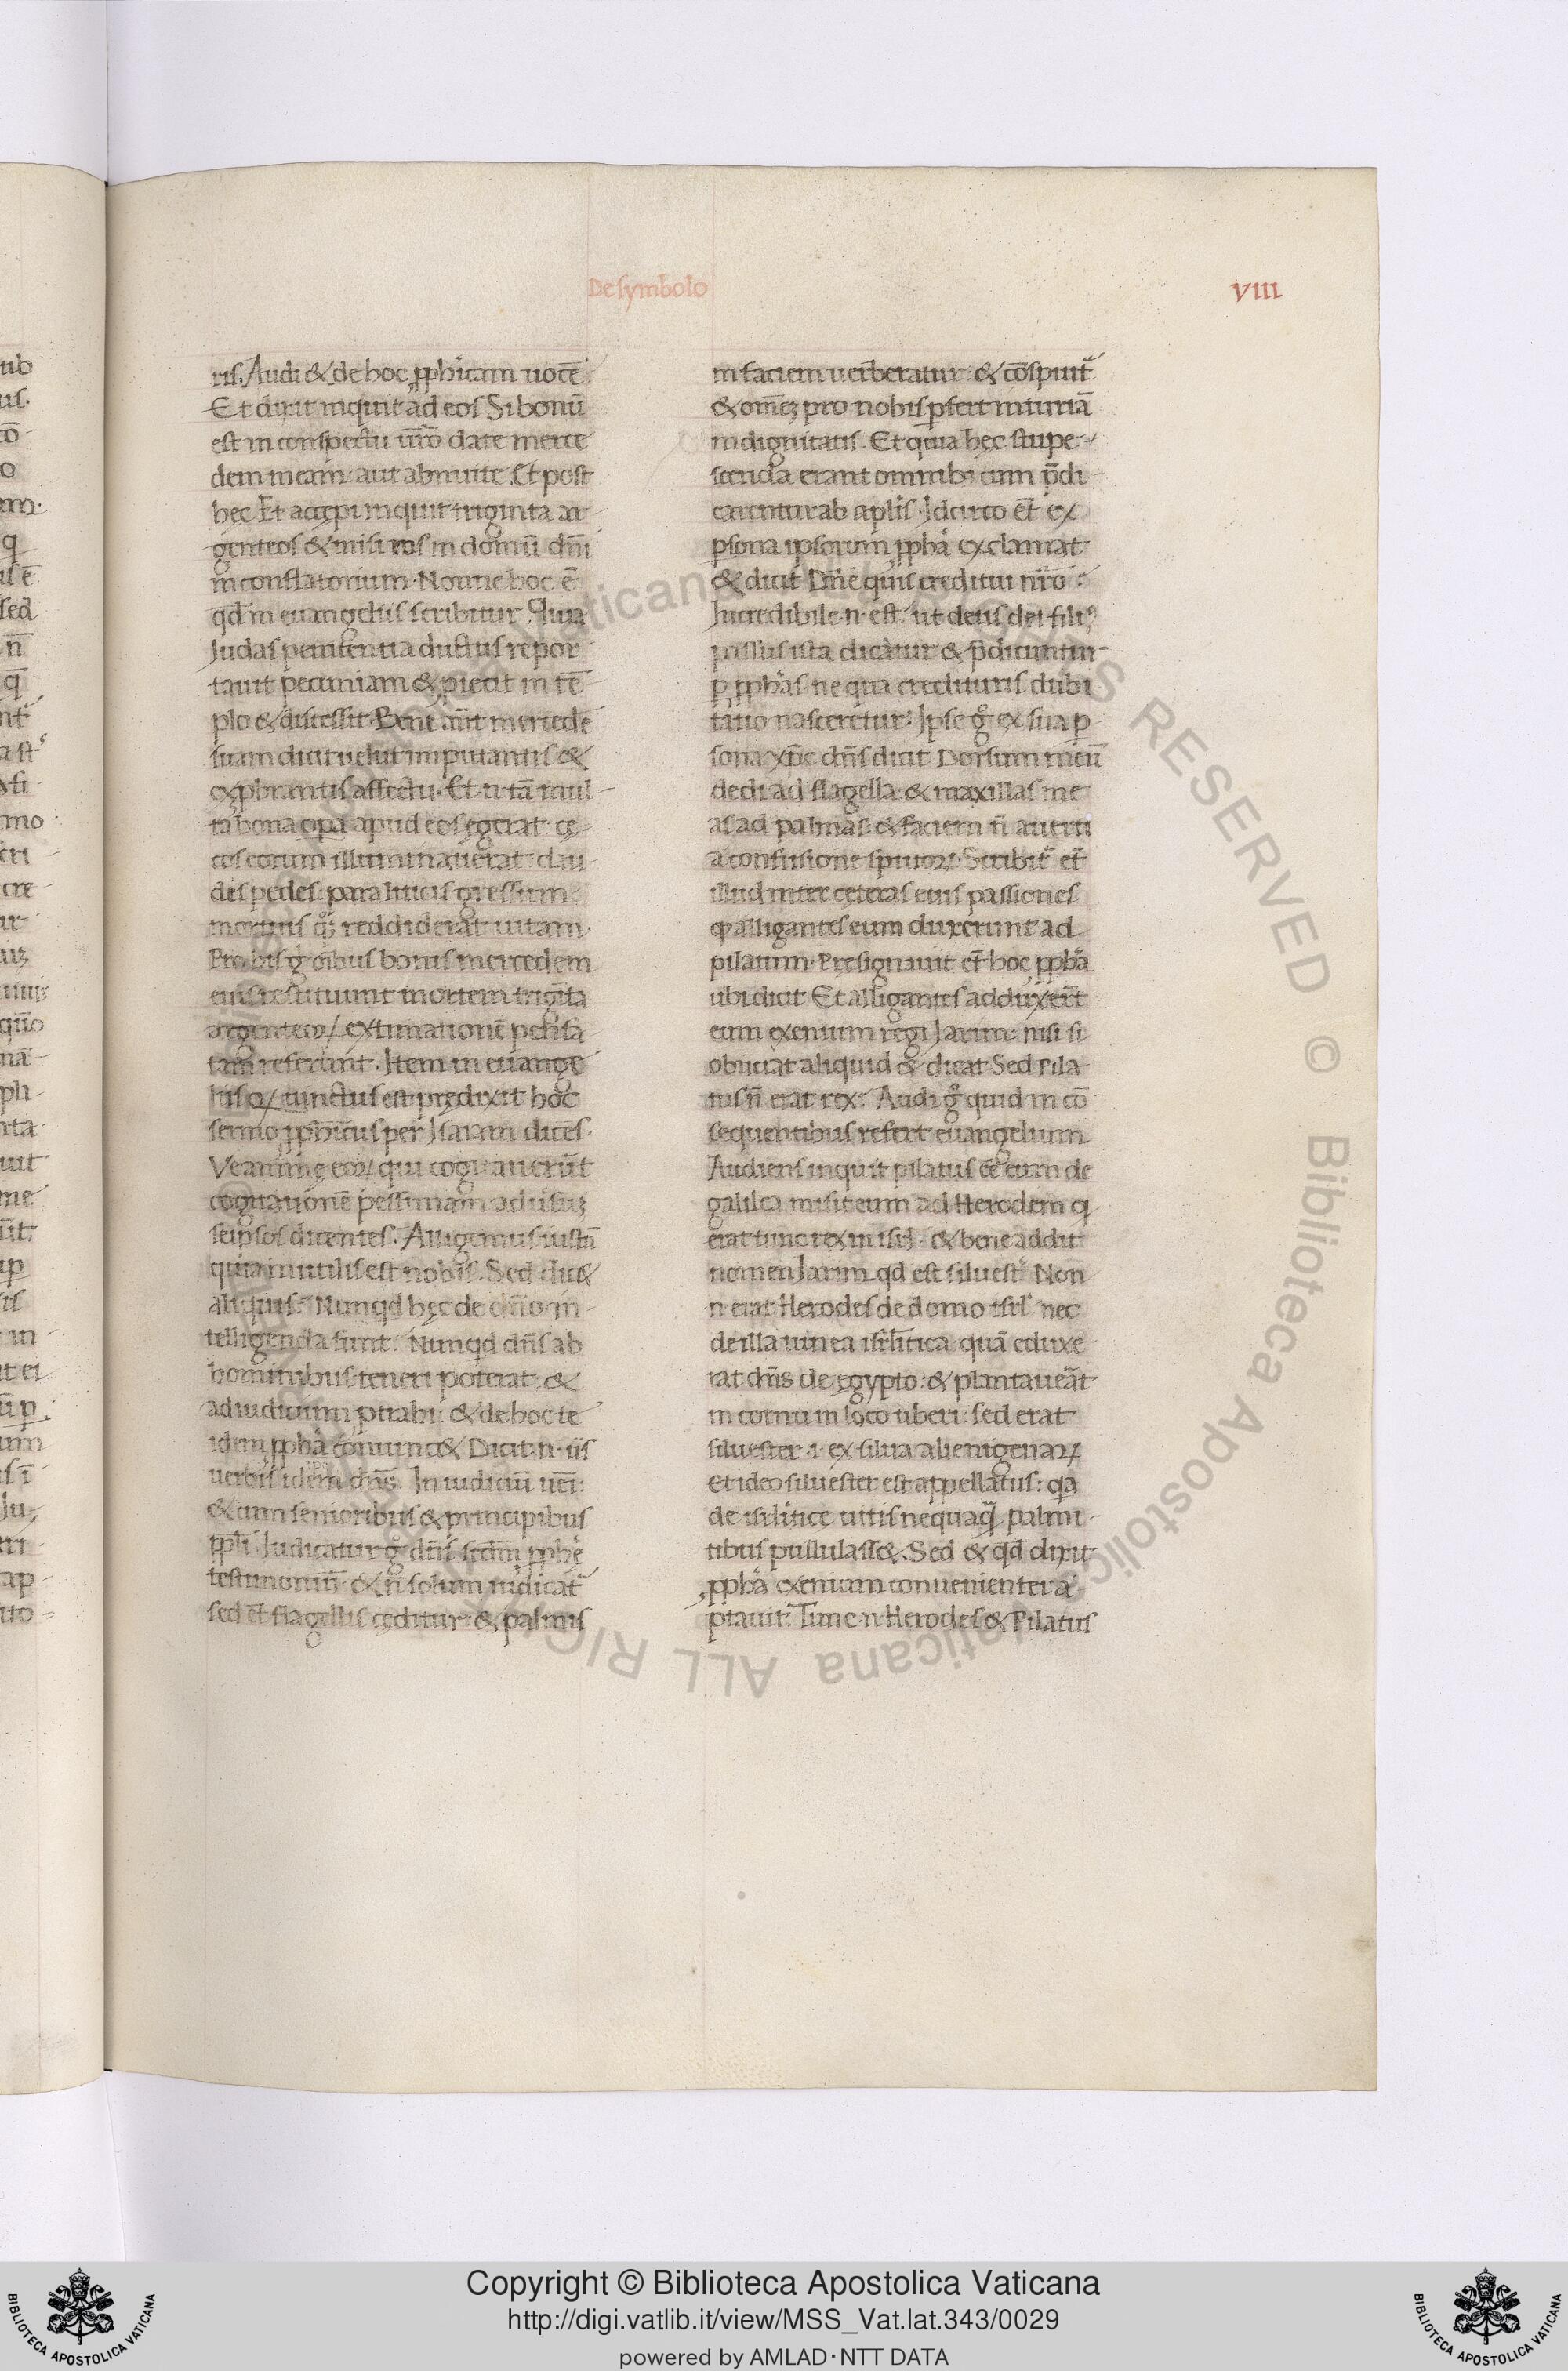 De symbolo
VIII
ris. Audi & de hoc ꝓph̄icam uocē
Et dixit inquit ad eos Si bonū
est in conspectu ūro date merce
dem meam: aut abnuite. Et post
hęc Et accępi inquit triginta ar
genteos & misi eos in domū dn̄i
in conflatorium. Nonne hoc ē
qd̄ in euangeliis scribitur. Quia
Judas penitentia ductus repor
tauit pecuniam & ꝓiecit in tē
plo & discessit. Bene aūt mercedē
suam dicit uelut imputantis &
exꝓbrantis affectu. Et .n. tā mul
ta bona oꝑa apud eos egerat: cę
cos eorum illuminauerat: clau
dis pedes: paraliticis gressum
mortuis qͦꝫ reddiderat uitam.
Pro his gͦ oībus bonis mercedem
ei restituunt mortem trigīta
argenteoꝝ extimationē pensa
tam referunt. Item in euange
liis ꝙ uinctus est prędixit hoc
sermo ꝓph̄icus per Isaiam dicēs.
Ve animę eoꝝ qui cogitauerūt
cogitationē pessimam aduersuꝫ
seipsos dicentes. Alligemus iustū
quia inutilis est nobis. Sed dic&
aliquis. Nunqd hęc de dn̄o in
telligenda sunt. Nunqd dn̄s ab
hominibus teneri poterat &
ad iudicium ꝑtrahi: & de hoc te
idem ꝓph̄a conuinc& Dicit .n. iis
uerbis idem dn̄s. In iudiciū uēi:
& cum senioribus & principibus
ppl̄i Judicatur gͦ dn̄s scdm ꝓph̄ę
testimoniū & n̄ solum iudicat̄
sed et̄ flagellis cęditur: & palmis
in faciem uerberatur: & cōspuit̄
& omēꝫ pro nobis ꝑfert iniuriā
indignitatis. Et quia hęc stupe
scenda erant omnibꝰ cum p̄di
carentur ab apl̄is. Idcirco et̄ ex
ꝑsona ipsorum ꝓph̄a exclamat
& dicit Dn̄e quis credidit nr̄o
Incredibile .n. est ut deus dei filiꝰ
passus ista dicatur & p̄dicuntur
ꝑ ꝓph̄as ne qua credituris dubi
tatio nasceretur. Ipse gͦ ex sua ꝑ
sona xp̄c dn̄s dicit Dorsum meū
dedi ad flagella: & maxillas me
as ad palmas: & faciem n̄ auerti
a confusione sputoꝝ. Scribit̄ et̄
illud inter cęteras eius passiones
ꝙ alligantes eum duxerunt ad
pilatum. Presignauit et̄ hoc ꝓph̄a
ubi dicit Et alligantes adduxer̄t
eum exenium regi Jarim: nisi si
obiiciat aliquid & dicat Sed Pila
tus n̄ erat rex. Audi gͦ quid in cō
sequentibus refert euangelium
Audiens inquit pilatus eē eum de
galilea misit eum ad Herodem q
erat tunc rex in isrl̄. & bene addit
nomen Jarim qd̄ est siluestr̄ Non
.n. erat Herodes de domo isrl̄ nec
de illa uinea isrl̄itica quā eduxe
rat dn̄s de ęgypto: & plantaueāt
in cornu in loco uberi: sed erat
siluester .i. ex silua alienigenaꝝ
Et ideo siluester est appellatus: qa
de isrl̄iticę uitis nequaq̄ palmi
tibus pullulass&. Sed & qd̄ dixit
ꝓph̄a exenium conuenienter a
ptauit. Tunc .n. Herodes & Pilatus
Copyright © Biblioteca Apostolica Vaticana
http://digi.vatlib.it/view/MSS_Vat.lat.343/0029
powered by AMLAD·NTT DATA
BIBLIOTECA APOSTOLICA VATICANA
BIBLIOTECA APOSTOLICA VATICANA